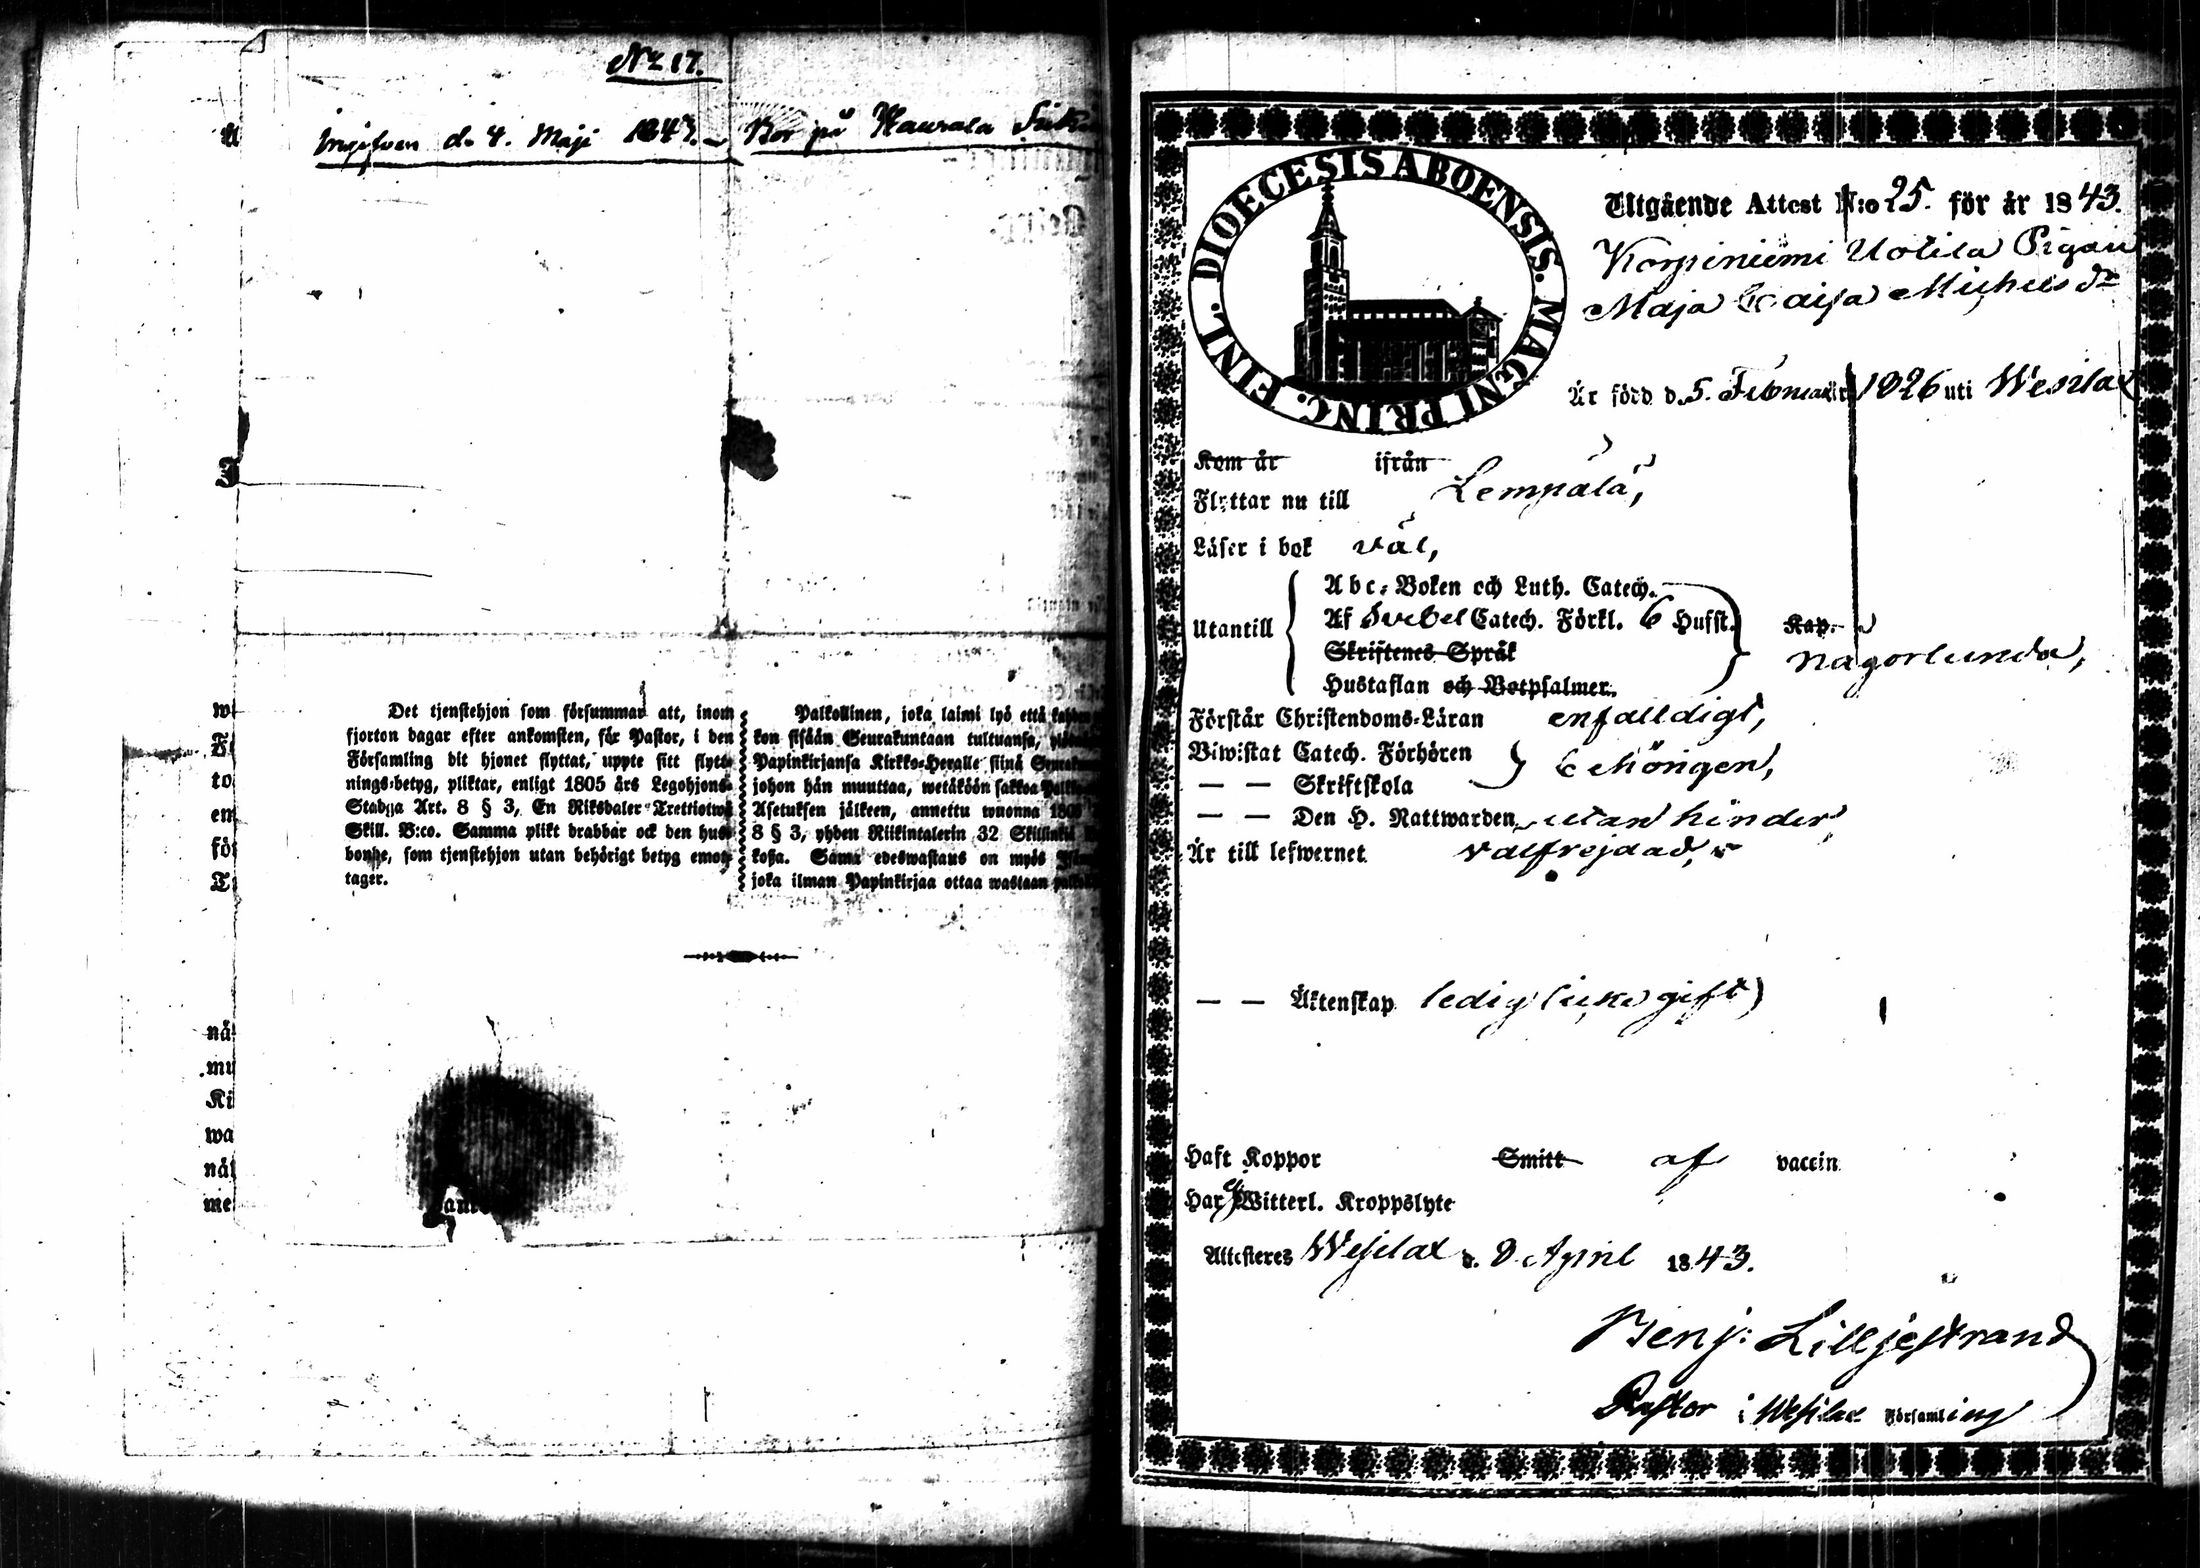 No 17.
Ingifven d. 4. Maji 1843. – Bor på Haurala
Det tjenstehjon som försummar att, inom
fjorton dagar efter ankomsten, för Pastor, i den
Församling dit hjonet flyttat, uppte sitt flytt-
nings-betyg, pliktar, enligt 1805 års Legohjons-
Stadga Art. 8 § 3, En Riksdaler Trettiotwå
Skill. B:co. Samma plikt drabbar ock den hus-
bonde, som tjenstehjon utan behörigt betyg emot-
tager.
Palkollinen, joka laimi lyö että
kon sisään Seurakuntaan tultuansa,
Papinkirjansa Kirkko-Heralle siinä
johon hän muuttaa, wetäköön sakkoa
Asetuksen jälkeen, annettu wuonna 1805
8 § 3, yhden Riikintalerin 32 Skillinkiä
koßa. Sama edeswastaus on myös
joka ilman Papinkirjaa ottaa wastaan
DIOECESIS ABOENSIS. MAGNI PRINC. FINL.
Utgående Attest N:o 25. för år 1843.
Korpiniemi Uotila Pigan
Maja Caisa Michelsdr
Är född d. 5. Februarii 1826 uti Wesilax
Kom år ifrån
Flyttar nu till Lempälä,
Läser i bok väl,
Utantill
Abc-Boken och Luth. Catech.
Af Svebel Catech. Förkl. 6 Hufst. Kap.
Skriftenes Språk någorlunda,
Hustaflan och Botpsalmer.
Förstår Christendoms-Läran enfalldigt,
Biwistat Catech. Förhören
— — Skriftskola behörigen,
— — Den H. Nattwarden utan hinder,
Är till lefwernet välfrejdad,
— — Äktenskap ledig (icke gift)
Haft Koppor Smitt af vaccin
Har ej Witterl. Kroppslyte
Attesteres Wesilax d. 8 April 1843.
Benj: Lilljestrand
Pastor i Wesilax Församling